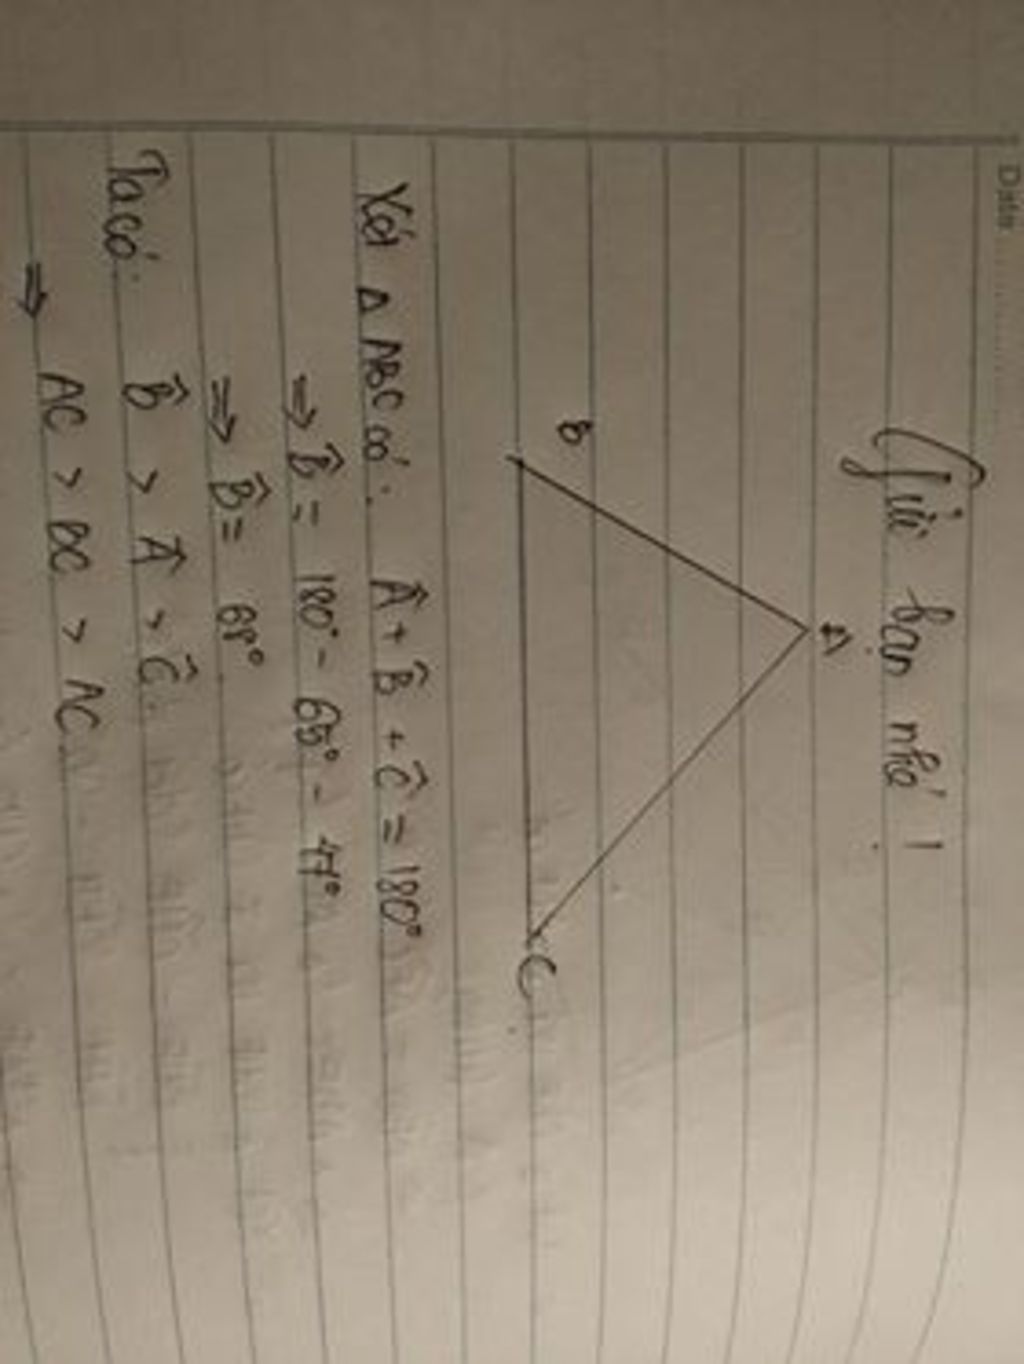 Date
Gửi bạn nhé!
A
B
C
Xét Δ ABC có: Â + B̂ + Ĉ = 180°
⇒ B̂ = 180° - 65° - 47°
⇒ B̂ = 68°
Ta có: B̂ > Â > Ĉ.
⇒ AC > BC > AC